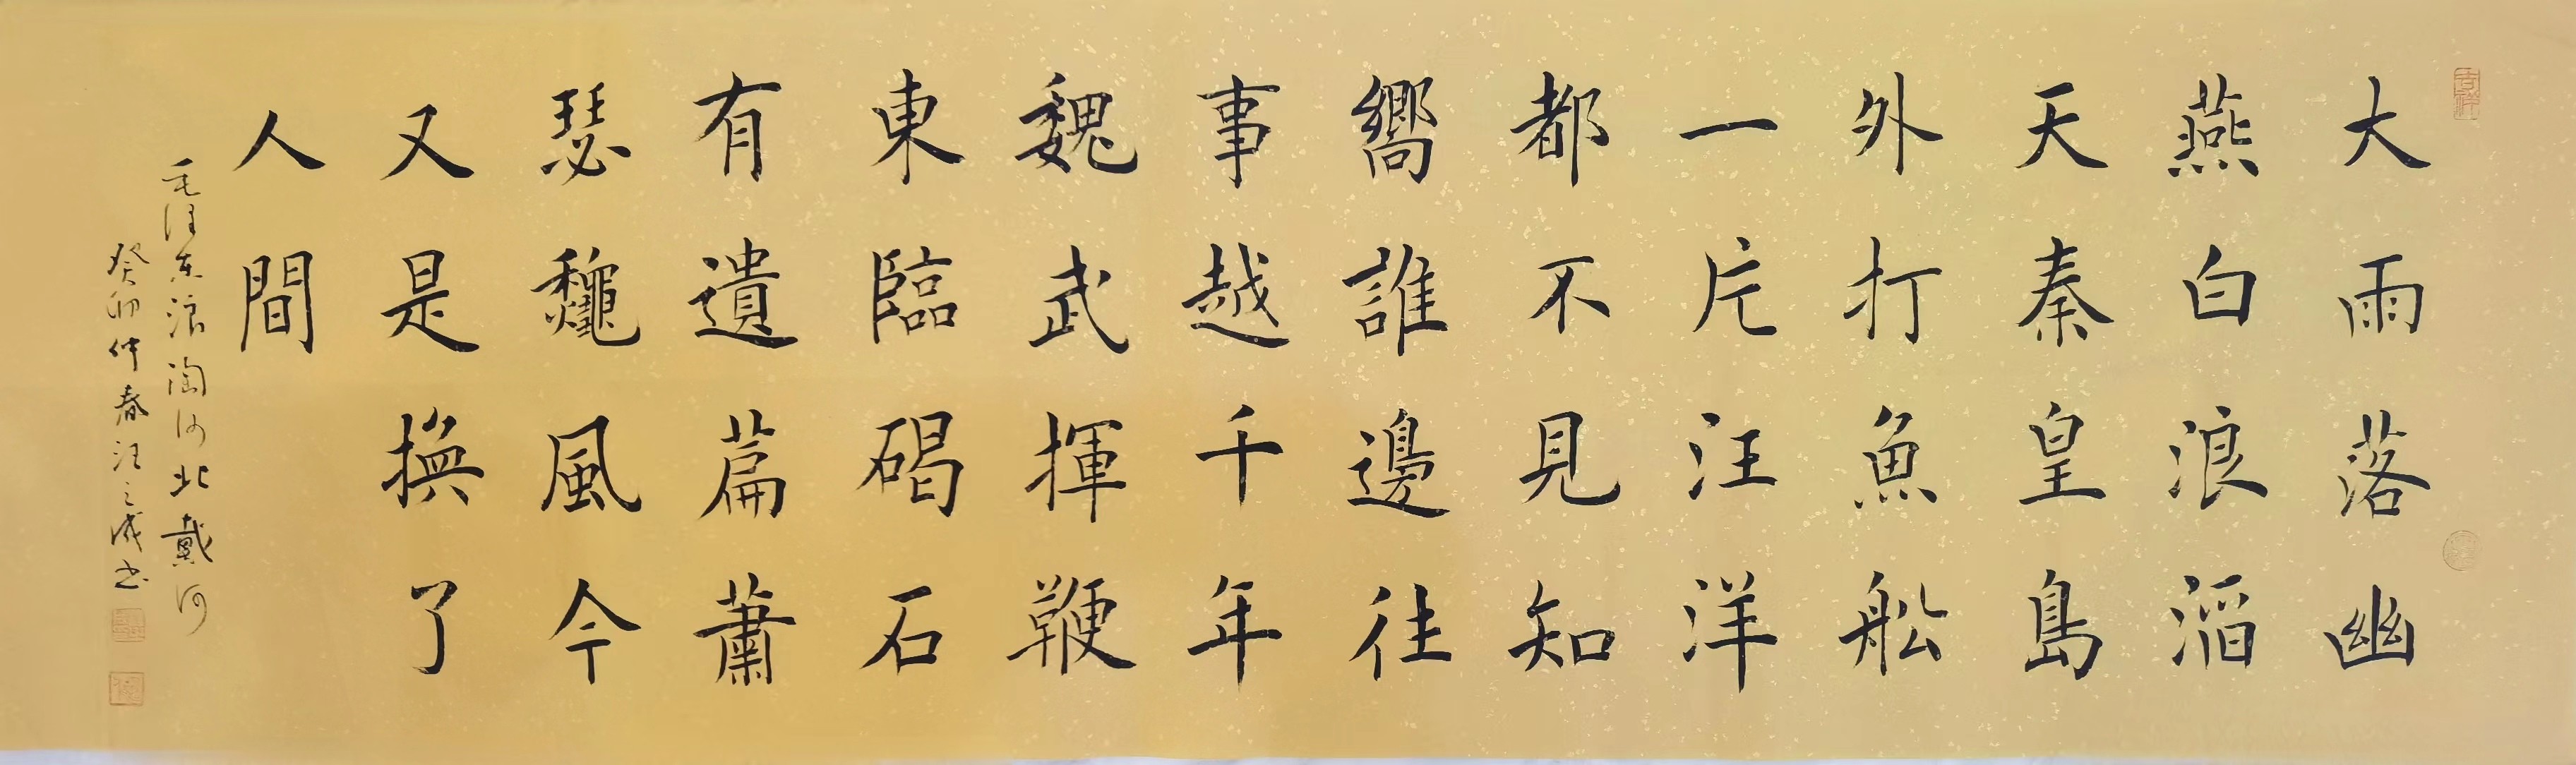 大雨落幽
燕白浪滔
天秦皇島
外打魚舩
一片汪洋
都不見知
嚮誰邊往
事越千年
魏武揮鞭
東臨碣石
有遺篇蕭
瑟龝風今
又是換了
人間
毛泽东浪淘沙北戴河
癸卯仲春汪之成书
吉祥